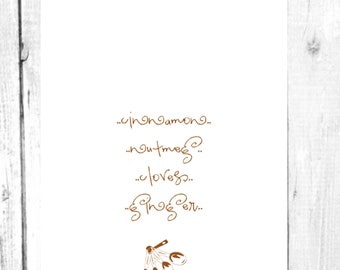 ..cinnamon..
..nutmeg..
..cloves..
..ginger..